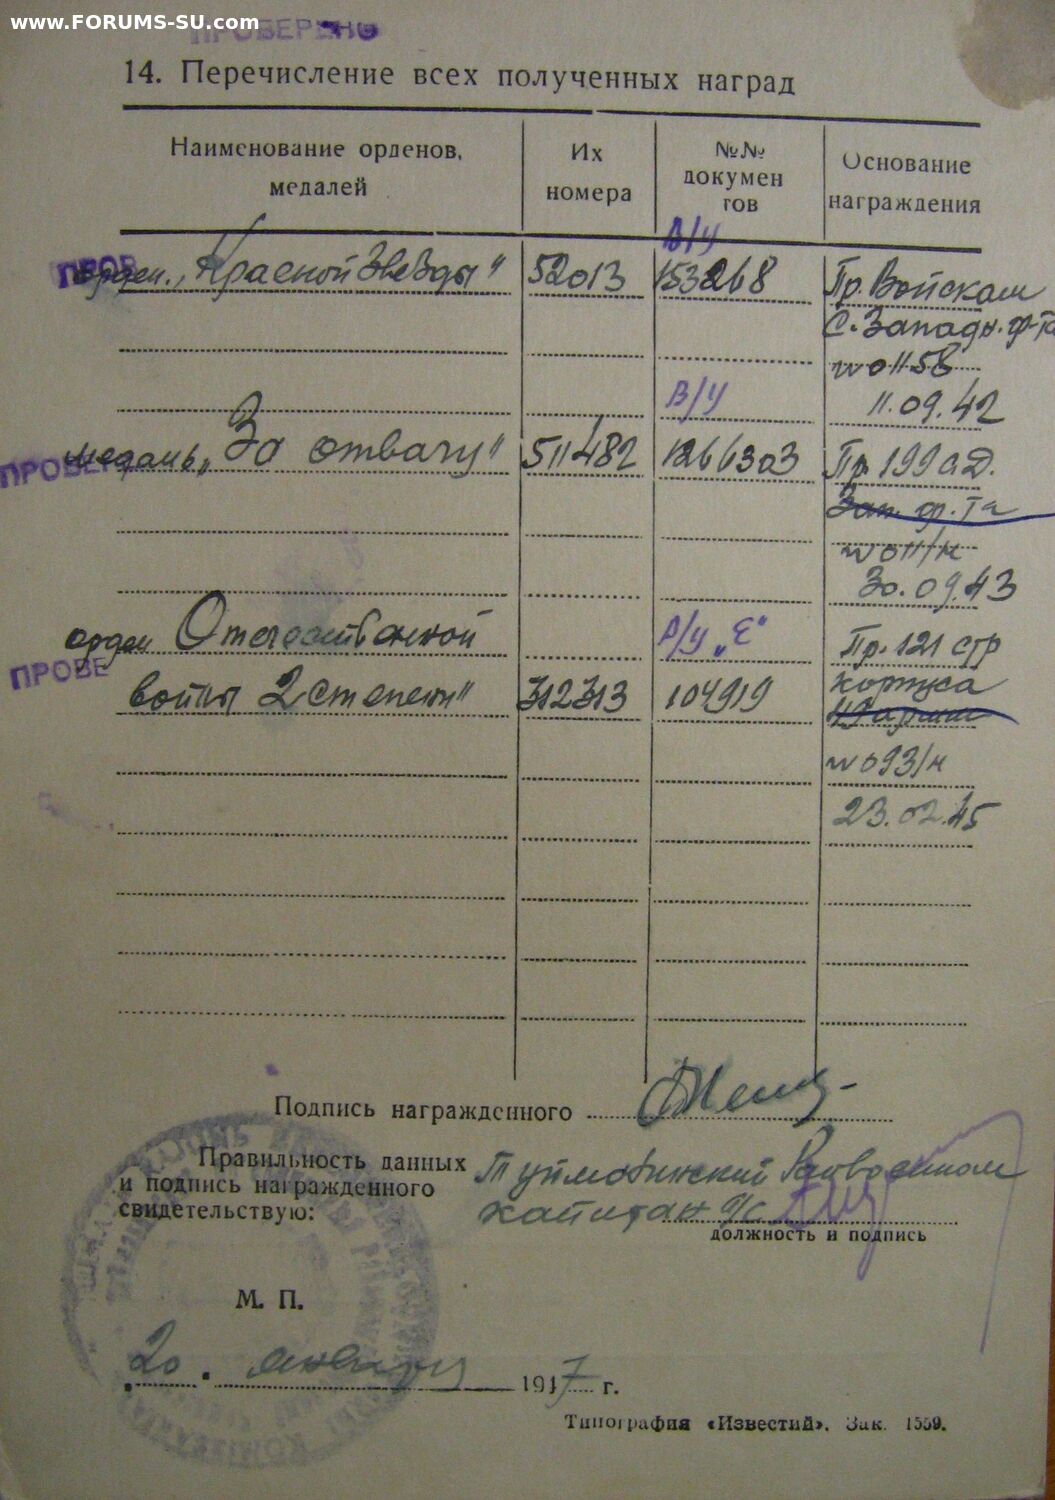 www.FORUMS-SU.com
ПРОВЕРЕНО
14. Перечисление всех полученных наград
Наименование орденов, медалей
Их номера
№№ докумен тов
Основание награждения
В/у
ПРОВ
орден „Красной Звезды" 52013 153268 Пр. Войскам
С. Западн. ф-та
№ 01158
В/у 11.09.42
ПРОВЕ
медаль „За отвагу" 511482 1266303 Пр. 199 а.д.
Зап. фр-та
№ 011/н
30.09.43
орден Отечественной В/у „Е" Пр. 121 стр
ПРОВЕ
войны 2 степени" 312313 104919 корпуса
49 армии
№ 093/н
23.02.45
Подпись награжденного
Правильность данных
и подпись награжденного
свидетельствую:
Туймазинский Райвоенком
капитан а/с
должность и подпись
М. П.
20. января 1947 г.
Типография «Известий». Зак. 1559.